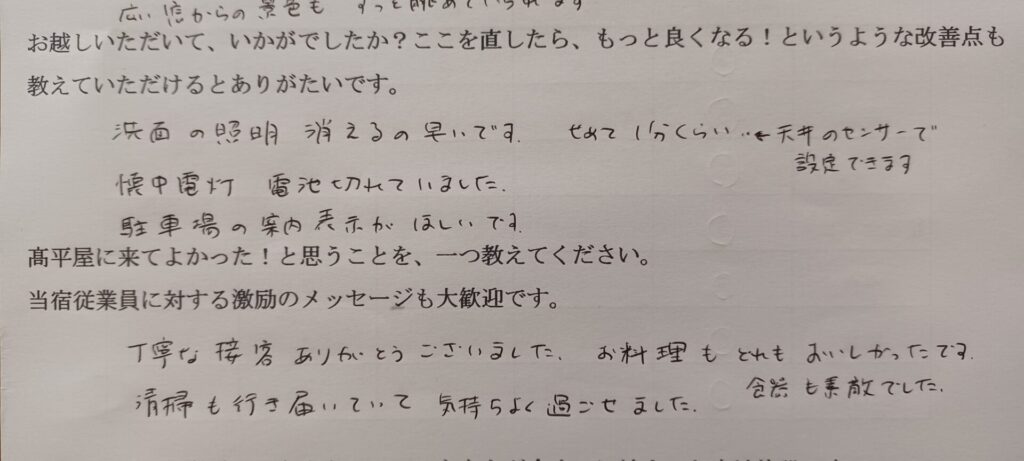 広い窓からの景色も ずっと眺めていられます
お越しいただいて、いかがでしたか？ここを直したら、もっと良くなる！というような改善点も
教えていただけるとありがたいです。
洗面の照明 消えるの早いです. せめて1分くらい..←天井のセンサーで
設定できます
懐中電灯 電池切れていました.
駐車場の案内表示がほしいです.
髙平屋に来てよかった！と思うことを、一つ教えてください。
当宿従業員に対する激励のメッセージも大歓迎です。
丁寧な接客ありがとうございました. お料理もとれもおいしかったです.
食器も素敵でした.
清掃も行き届いていて 気持ちよく過ごせました.